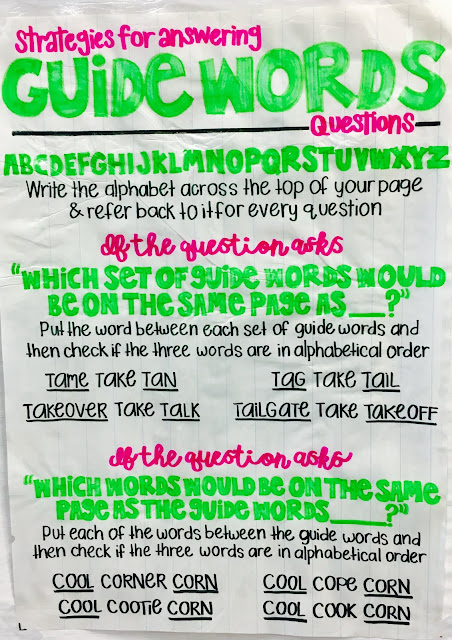 Strategies for answering
GUIDE WORDS
Questions
ABCDEFGHIJKLMNOPQRSTUVWXYZ
Write the alphabet across the top of your page
& refer back to it for every question
If the question asks
"WHICH SET OF GUIDE WORDS WOULD
BE ON THE SAME PAGE AS ___?"
Put the word between each set of guide words and
then check if the three words are in alphabetical order
TAME TAKE TAN TAG TAKE TAIL
TAKEOVER TAKE TALK TAILGATE TAKE TAKEOFF
If the question asks
"WHICH WORDS WOULD BE ON THE SAME
PAGE AS THE GUIDE WORDS____?"
Put each of the words between the guide words and
then check if the three words are in alphabetical order
COOL CORNER CORN COOL COPE CORN
COOL COOTIE CORN COOL COOK CORN